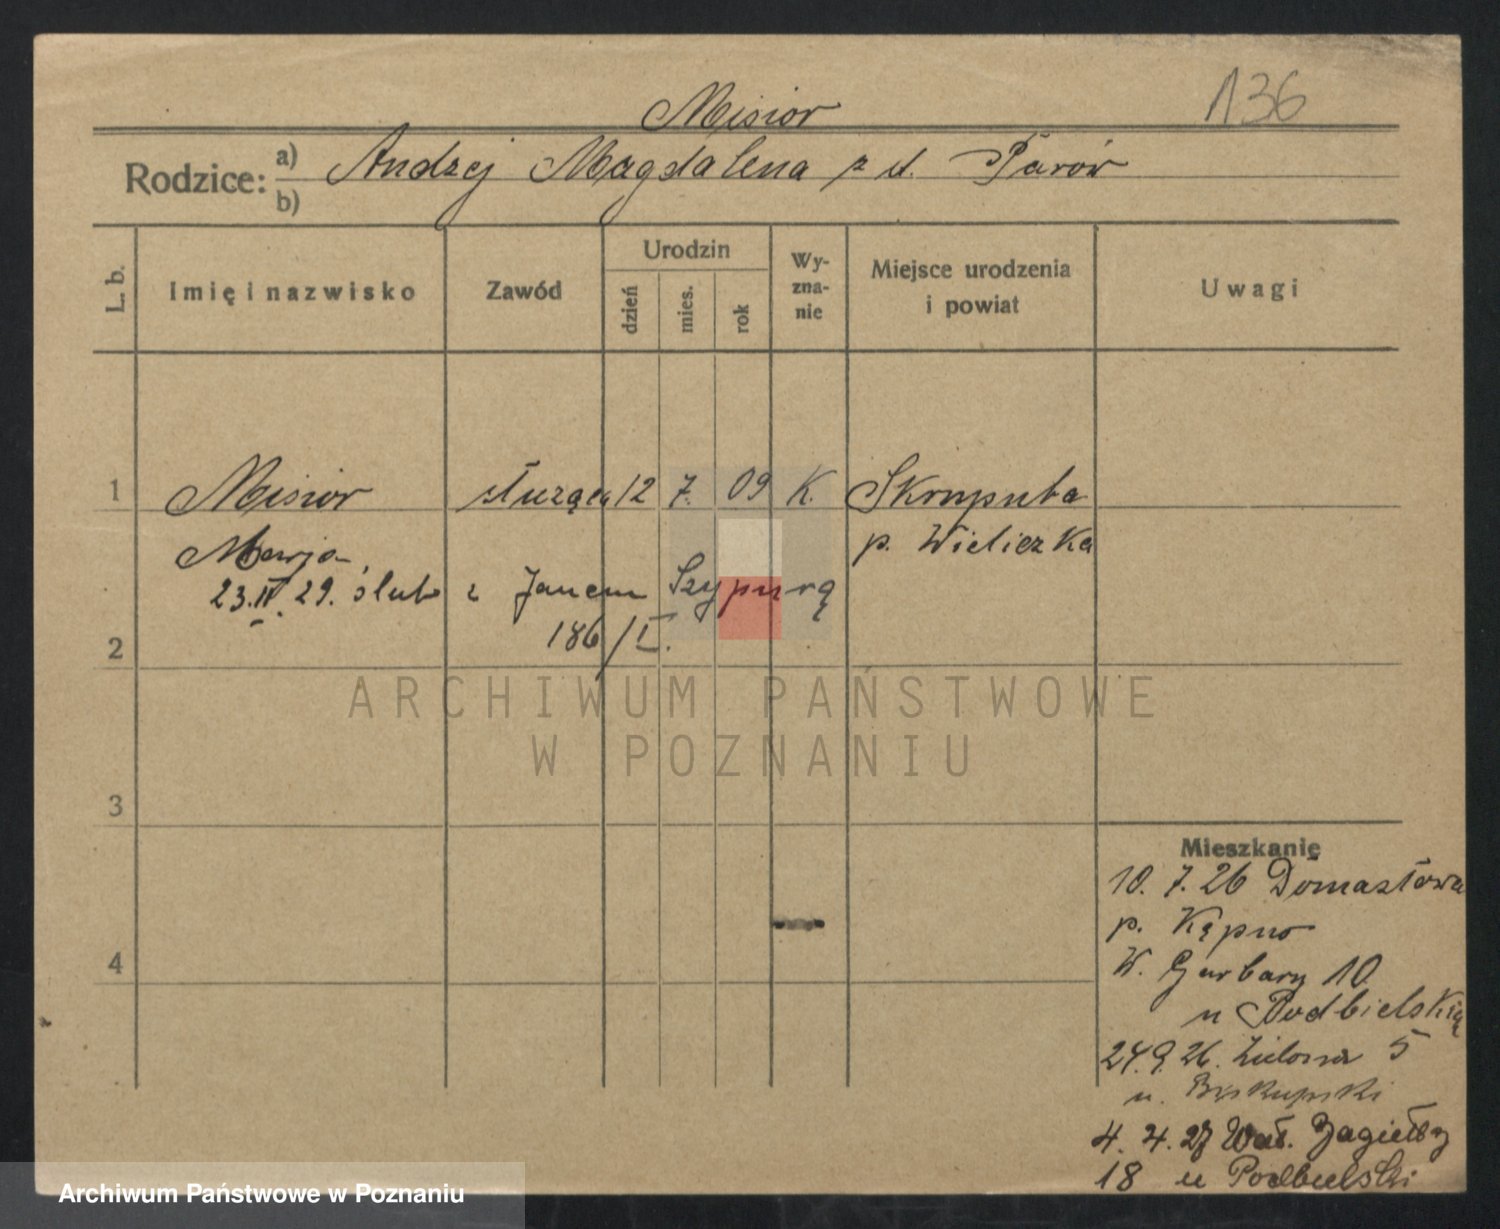 136
Misior
Rodzice: a) Andrzej Magdalena z d. Parów
b)
L. b. Imię i nazwisko Zawód Urodzin Wy-zna-nie Miejsce urodzenia i powiat Uwagi
dzień mies. rok
1 Misior służąca 12 7. 09 K. Skrzypuba
Marja p. Wieliczka
23.IV.29. ślub z Janem Szypurą
186/I.
2
ARCHIWUM PAŃSTWOWE
W POZNANIU
3
Mieszkanie
10. 7. 26 Domasłowa
p. Kępno
4
W. Garbary 10
u Podbielskią
24.9.26. Zielona 5
u. Biskupski
4. 4. 27 Wał. Jagiełły
18 u Podbielski
Archiwum Państwowe w Poznaniu